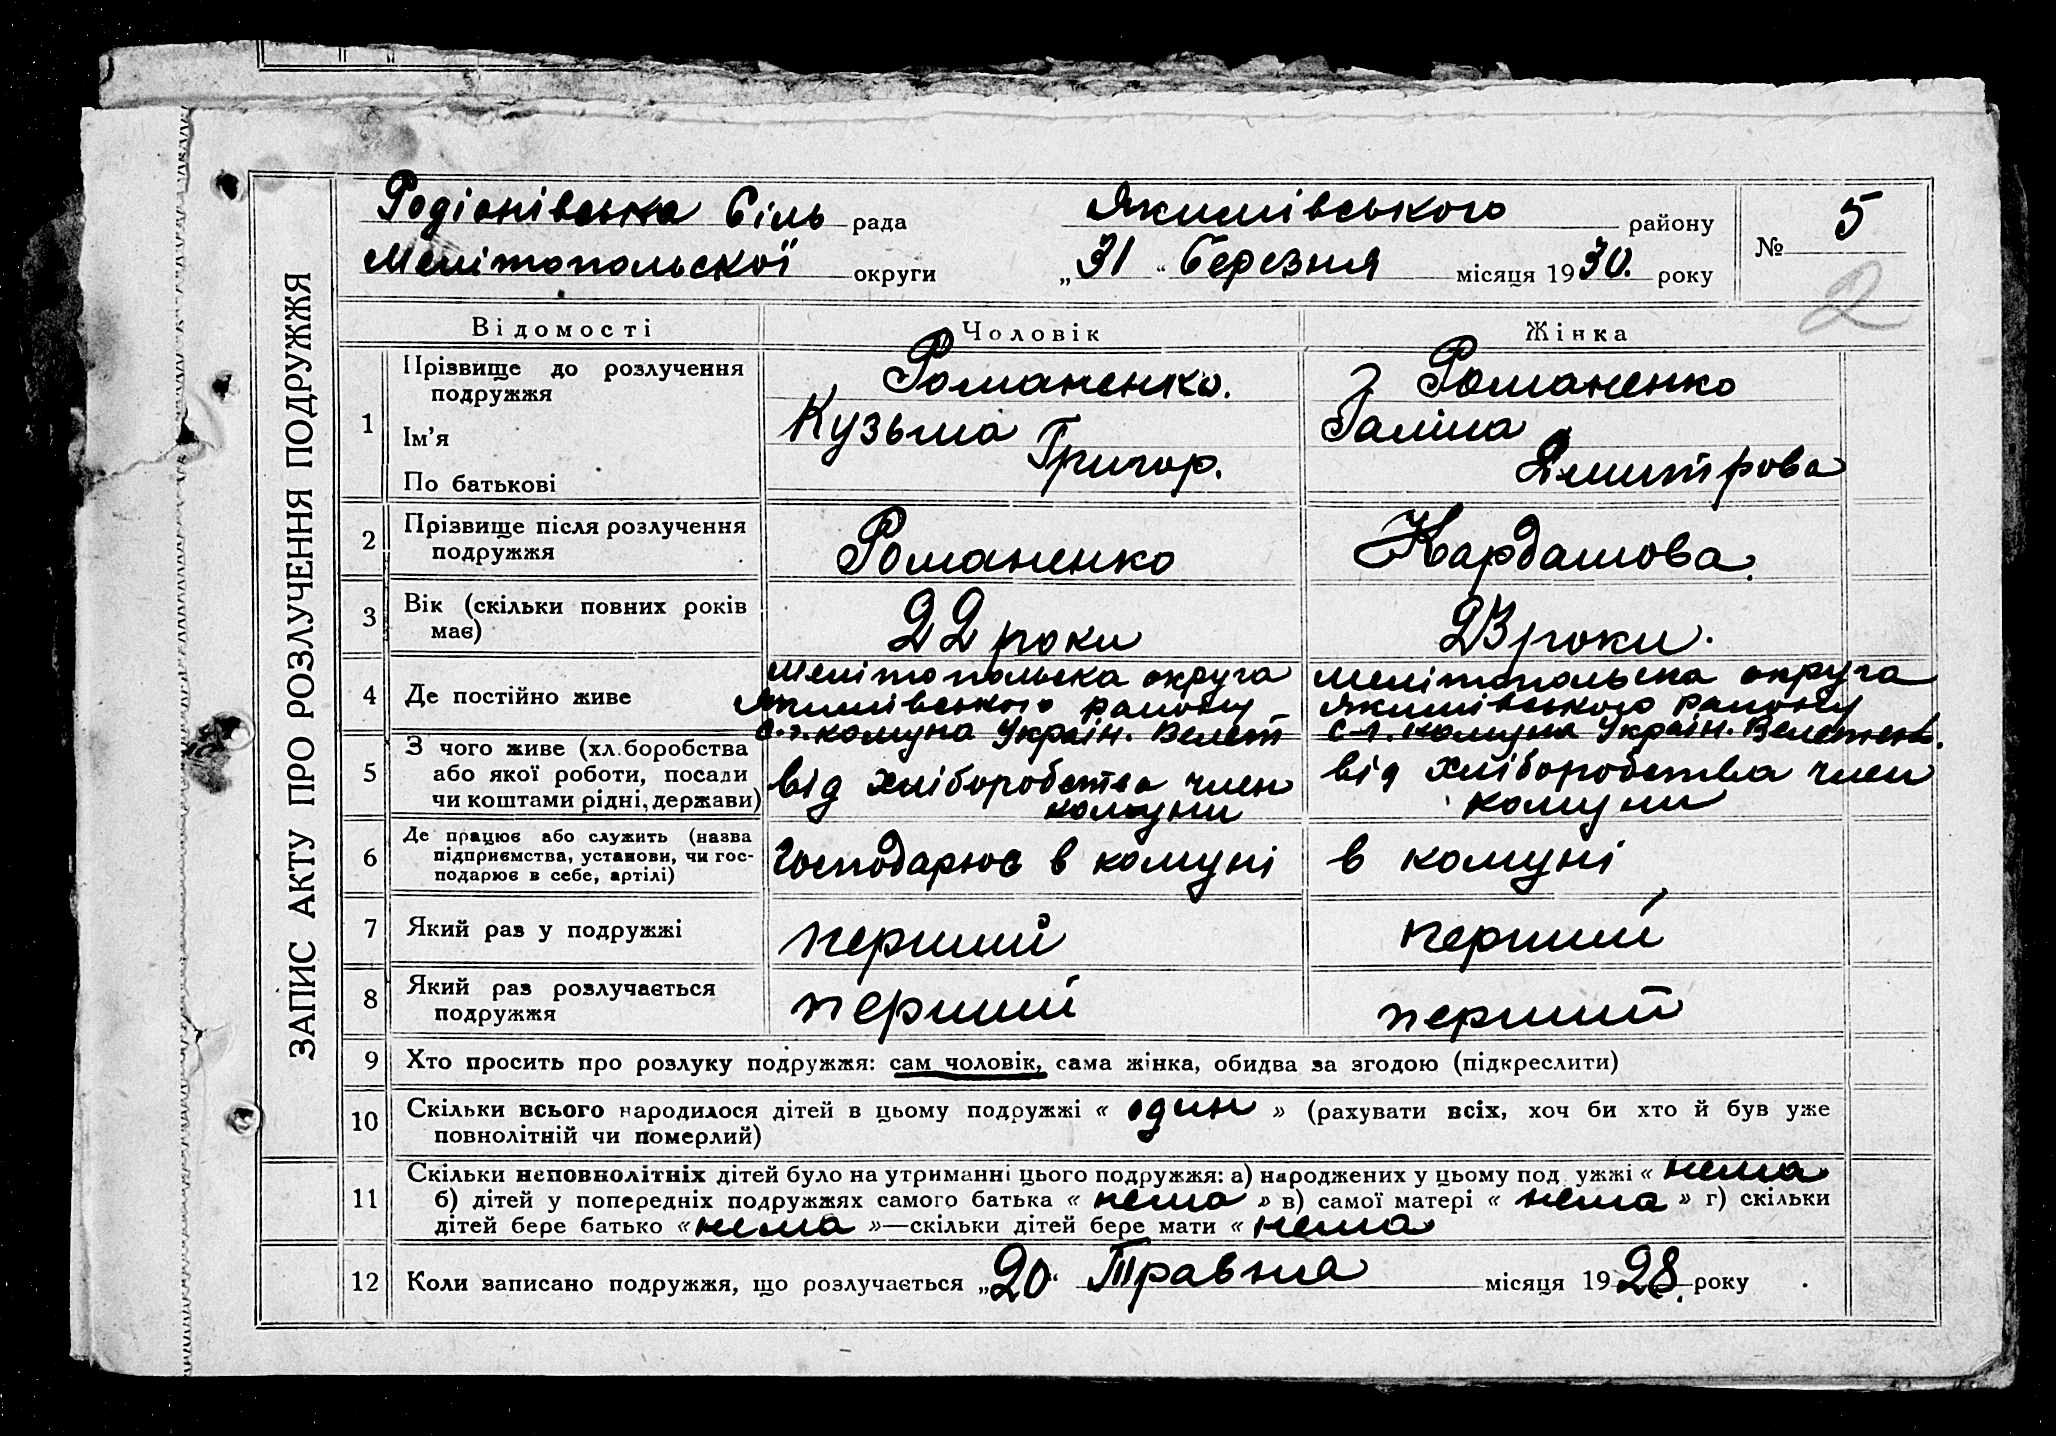 ЗАПИС АКТУ ПРО РОЗЛУЧЕННЯ ПОДРУЖЖЯ
Родіонівська Сіль рада Якимівського району
№ 5
Мелітопольскої округи „31“ Березня місяця 1930. року
2
Відомості Чоловік Жінка
1 Прізвище до розлучення подружжя Романенко. Романенко
Ім'я Кузьма Галина
По батькові Григор. Дмитрова
2 Прізвище після розлучення подружжя Романенко Кардашова.
3 Вік (скільки повних років має) 22 роки 23 роки.
4 Де постійно живе Мелітопольска округа Якимівського району с.г. комуна Україн. Велет Мелітопольска округа Якимівського району с-г. комуна Україн.
5 З чого живе (хл.боробства або якої роботи, посади чи коштами рідні, держави) від хліборобства член комуни від хліборобства член комуни
6 Де працює або служить (назва підприємства, установи, чи господарює в себе, артілі) господарює в комуні в комуні
7 Який раз у подружжі перший перший
8 Який раз розлучається подружжя перший перший
9 Хто просить про розлуку подружжя: сам чоловік, сама жінка, обидва за згодою (підкреслити)
10 Скільки всього народилося дітей в цьому подружжі « один » (рахувати всіх, хоч би хто й був уже
повнолітній чи померлий)
11 Скільки неповнолітніх дітей було на утриманні цього подружжя: а) народжених у цьому под ужжі « нема
б) дітей у попередніх подружжях самого батька « нема » в) самої матері « нема » г) скільки
дітей бере батько « нема »—скільки дітей бере мати « нема
12 Коли записано подружжя, що розлучається „20“ Травня місяця 1928. року